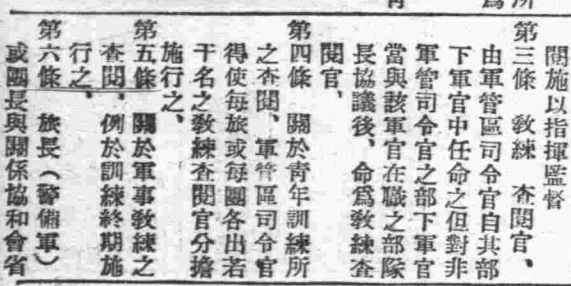 閱施以指揮監督
第三條　敎練　查閱官、
由軍管區司令官自其部
下軍官中任命之但對非
軍管司令官之部下軍官
當與該軍官在職之部隊
長協議後、命爲敎練查
閱官、
第四條　關於青年訓練所
之查閱、軍管區司令官
得使每旅或每團各出若
干名之敎練查閱官分擔
施行之、
第五條　關於軍事敎練之
查閱、例於訓練終期施
行之、
第六條　旅長（警備軍）
或團長與關係協和會省